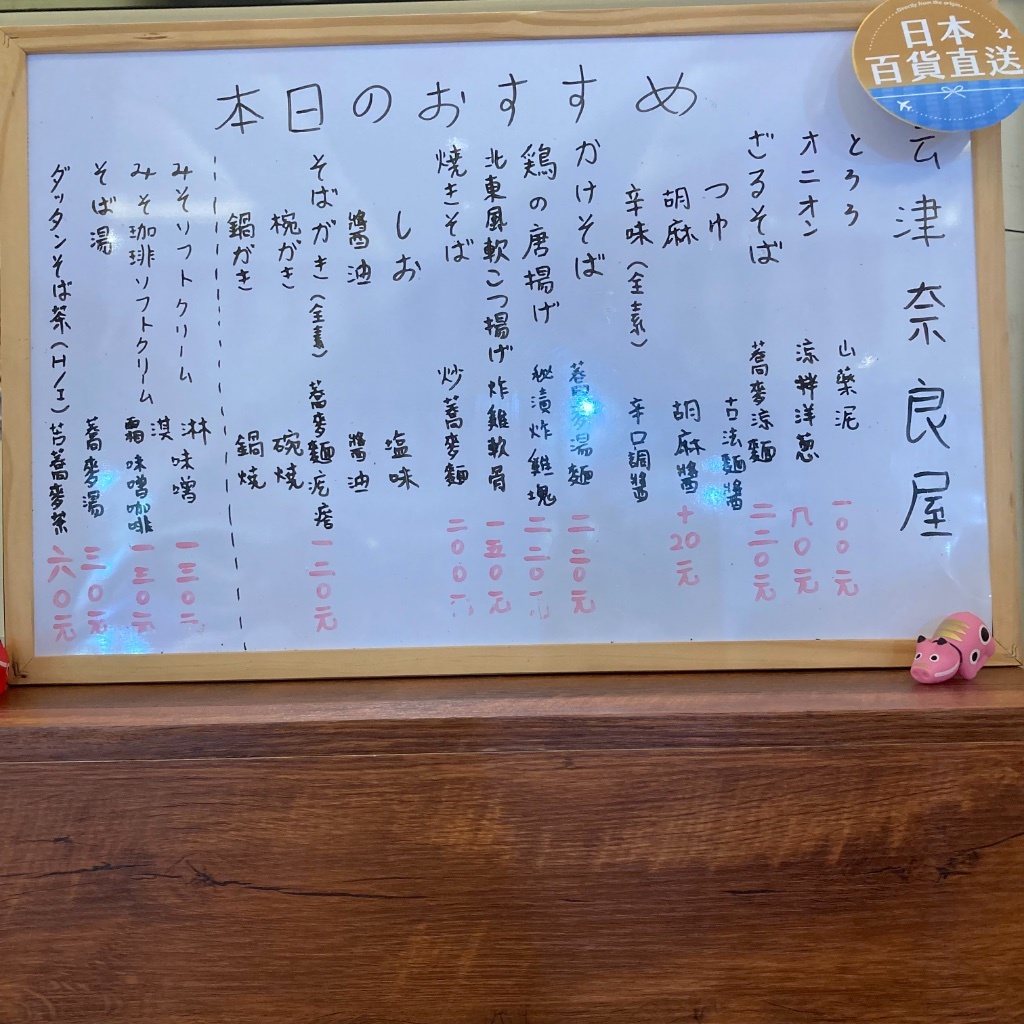 本日のおすすめ
日本
百貨直送
津奈良屋
とろろ 山藥泥 一00元
オニオン 涼拌洋蔥 八0元
ざるそば 蕎麥涼麵 二二0元
つゆ 古法麵醬
胡麻 胡麻醬 +20元
辛味(全素) 辛口調醬
かけそば 蕎麥湯麵 二二0元
鶏の唐揚げ 秘漬炸雞塊 二二0元
北東風軟こつ揚げ 炸雞軟骨 一五0元
焼きそば 炒蕎麥麵 二00元
しお 塩味
醬油 醬油
そばがき(全素) 蕎麥麵疙瘩 一二0元
椀がき 碗燒
鍋がき 鍋燒
みそソフトクリーム 味噌淋淇 一三0元
みそ珈琲ソフトクリーム 霜味噌咖啡 一三0元
そば湯 蕎麥湯 三0元
ダッタンそば茶(H/I) 苦蕎麥茶 六0元